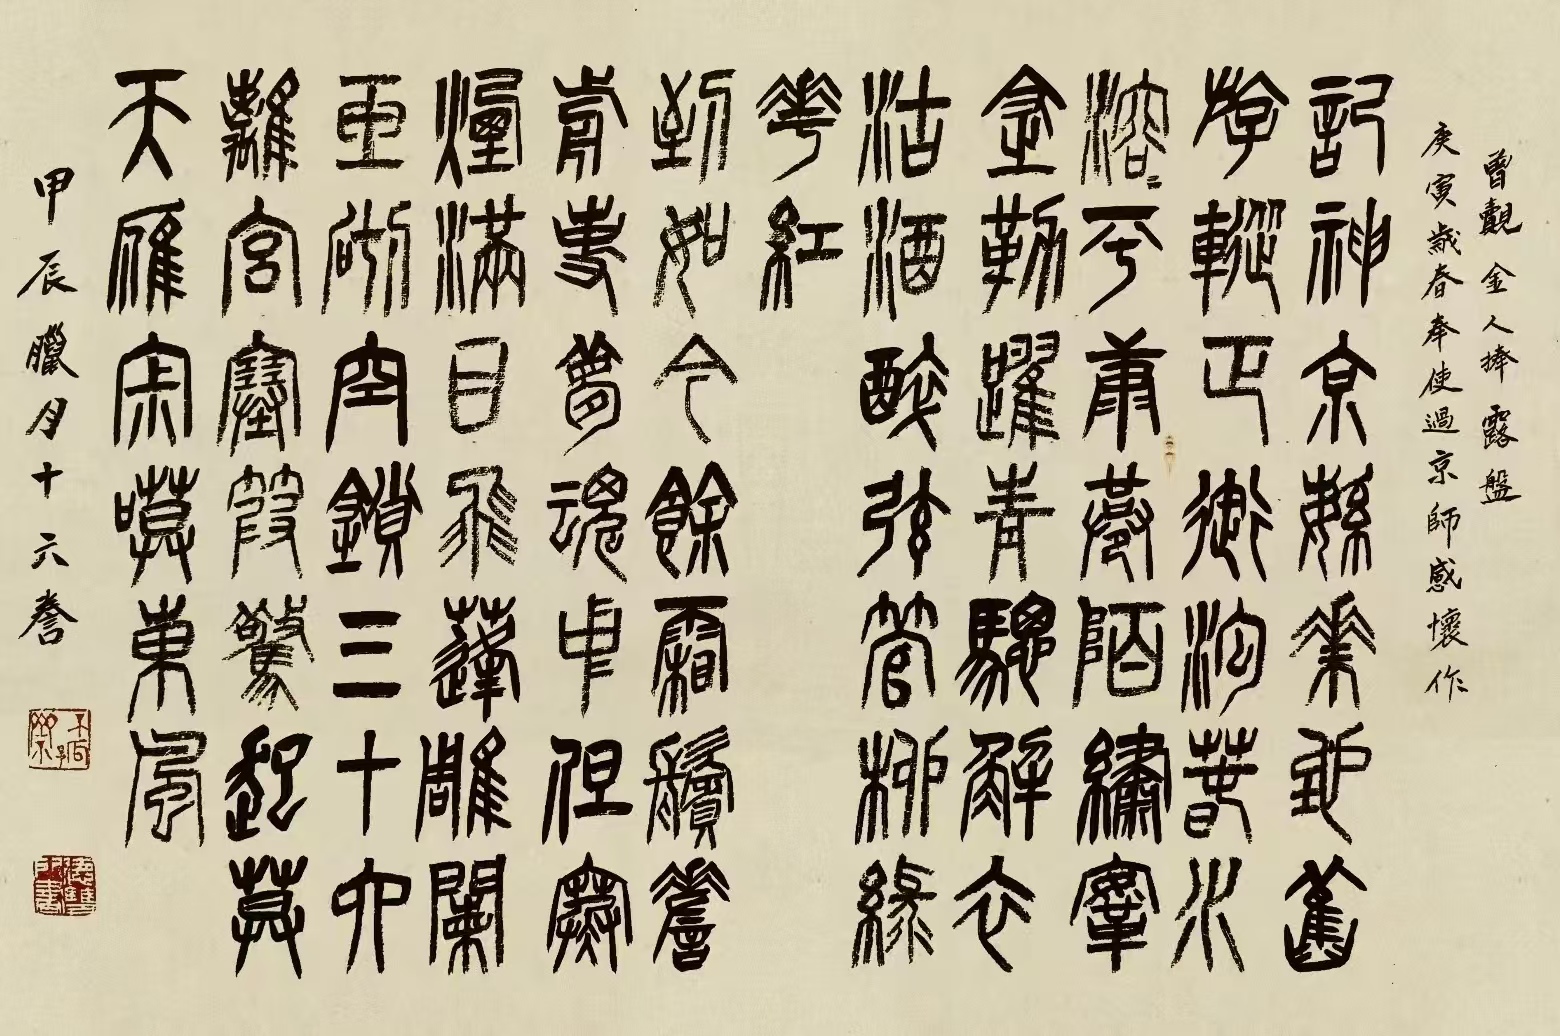 曾覿金人捧露盤
庚寅歲春奉使過京師感懷作
記神京緐華地舊
游蹤正御溝春水
溶=平康巷陌繡鞌
金勒躍青驄解衣
沽酒醉弦管柳綠
華紅
到如今餘霜鬢嗟
前事夢魂中但寒
煙滿目飛蓬雕闌
玉砌空鎖三十六
離宮塞笳驚起莫
天雁寂嗼東風
甲辰臘月十六謄